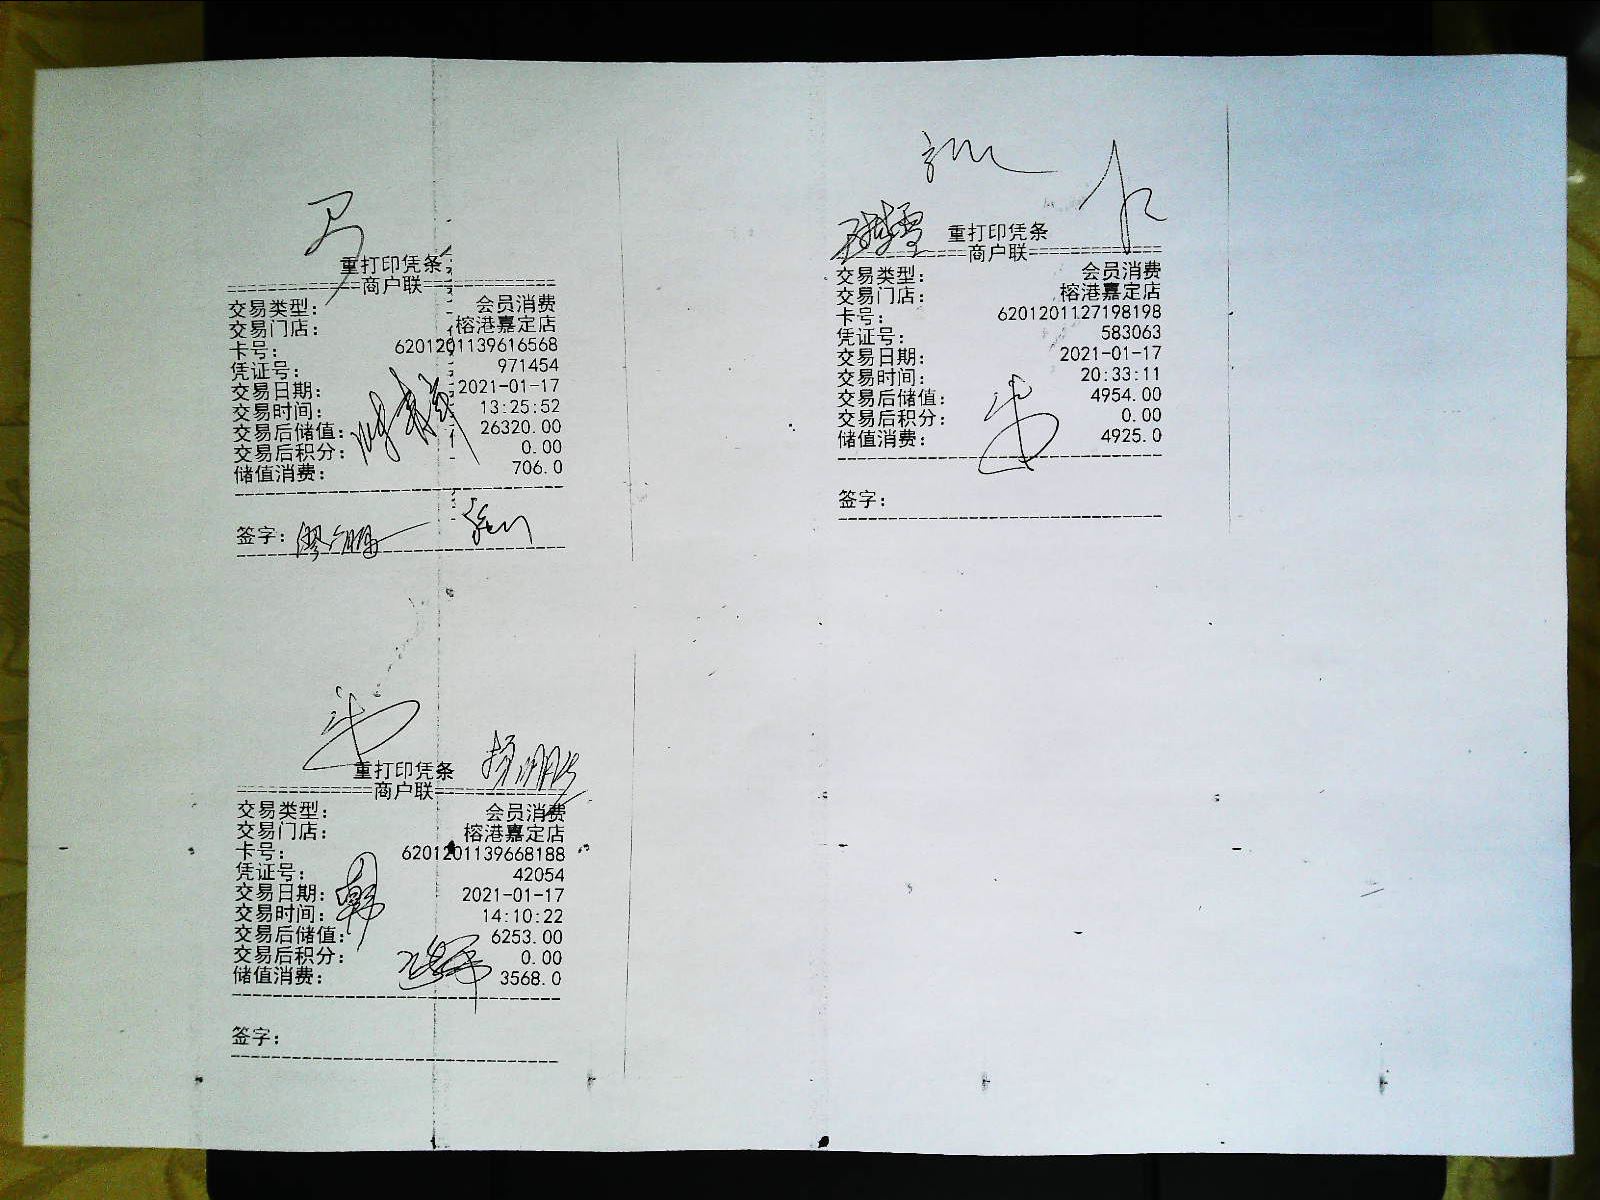 重打印凭条
==============商户联==============
交易类型： 会员消费
交易门店： 榕港嘉定店
卡号： 6201201139616568
凭证号： 971454
交易日期： 2021-01-17
交易时间： 13:25:52
交易后储值： 26320.00
交易后积分： 0.00
储值消费： 706.0
签字：
重打印凭条
==============商户联==============
交易类型： 会员消费
交易门店： 榕港嘉定店
卡号： 6201201127198198
凭证号： 583063
交易日期： 2021-01-17
交易时间： 20:33:11
交易后储值： 4954.00
交易后积分： 0.00
储值消费： 4925.0
签字：
重打印凭条
==============商户联==============
交易类型： 会员消费
交易门店： 榕港嘉定店
卡号： 6201201139668188
凭证号： 42054
交易日期： 2021-01-17
交易时间： 14:10:22
交易后储值： 6253.00
交易后积分： 0.00
储值消费： 3568.0
签字：